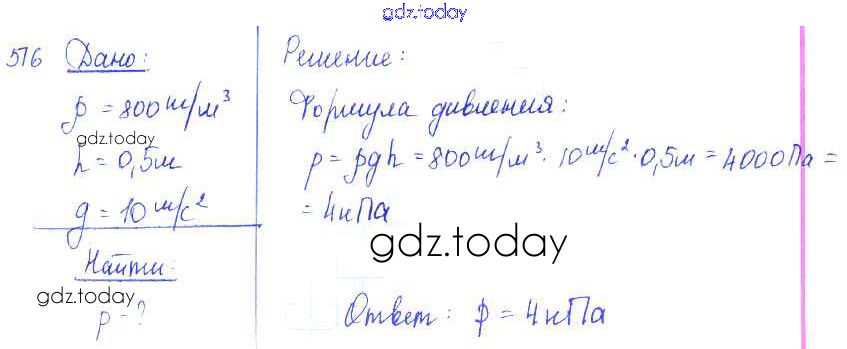 gdz.today
576 Дано:
ρ = 800 кг/м³
gdz.today
h = 0,5м
g = 10 м/с²
Найти:
gdz.today
p - ?
Решение:
Формула давления:
p = ρgh = 800 кг/м³ · 10 м/с² · 0,5м = 4000Па =
= 4кПа
gdz.today
Ответ: p = 4кПа